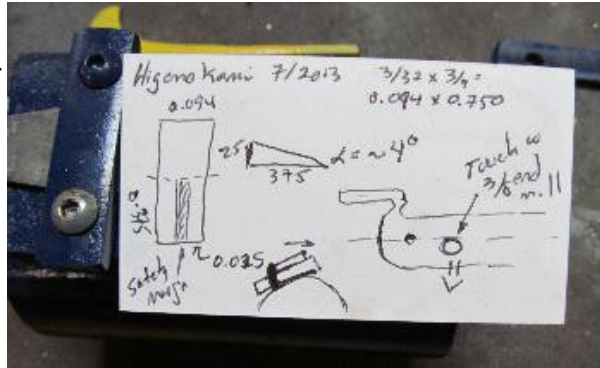 Higonokami 7/2013
3/32 x 3/4 =
0.094 x 0.750
0.094
25
375
α = ~4°
Touch w
3/8 end
mill
0.025
Safety
margin